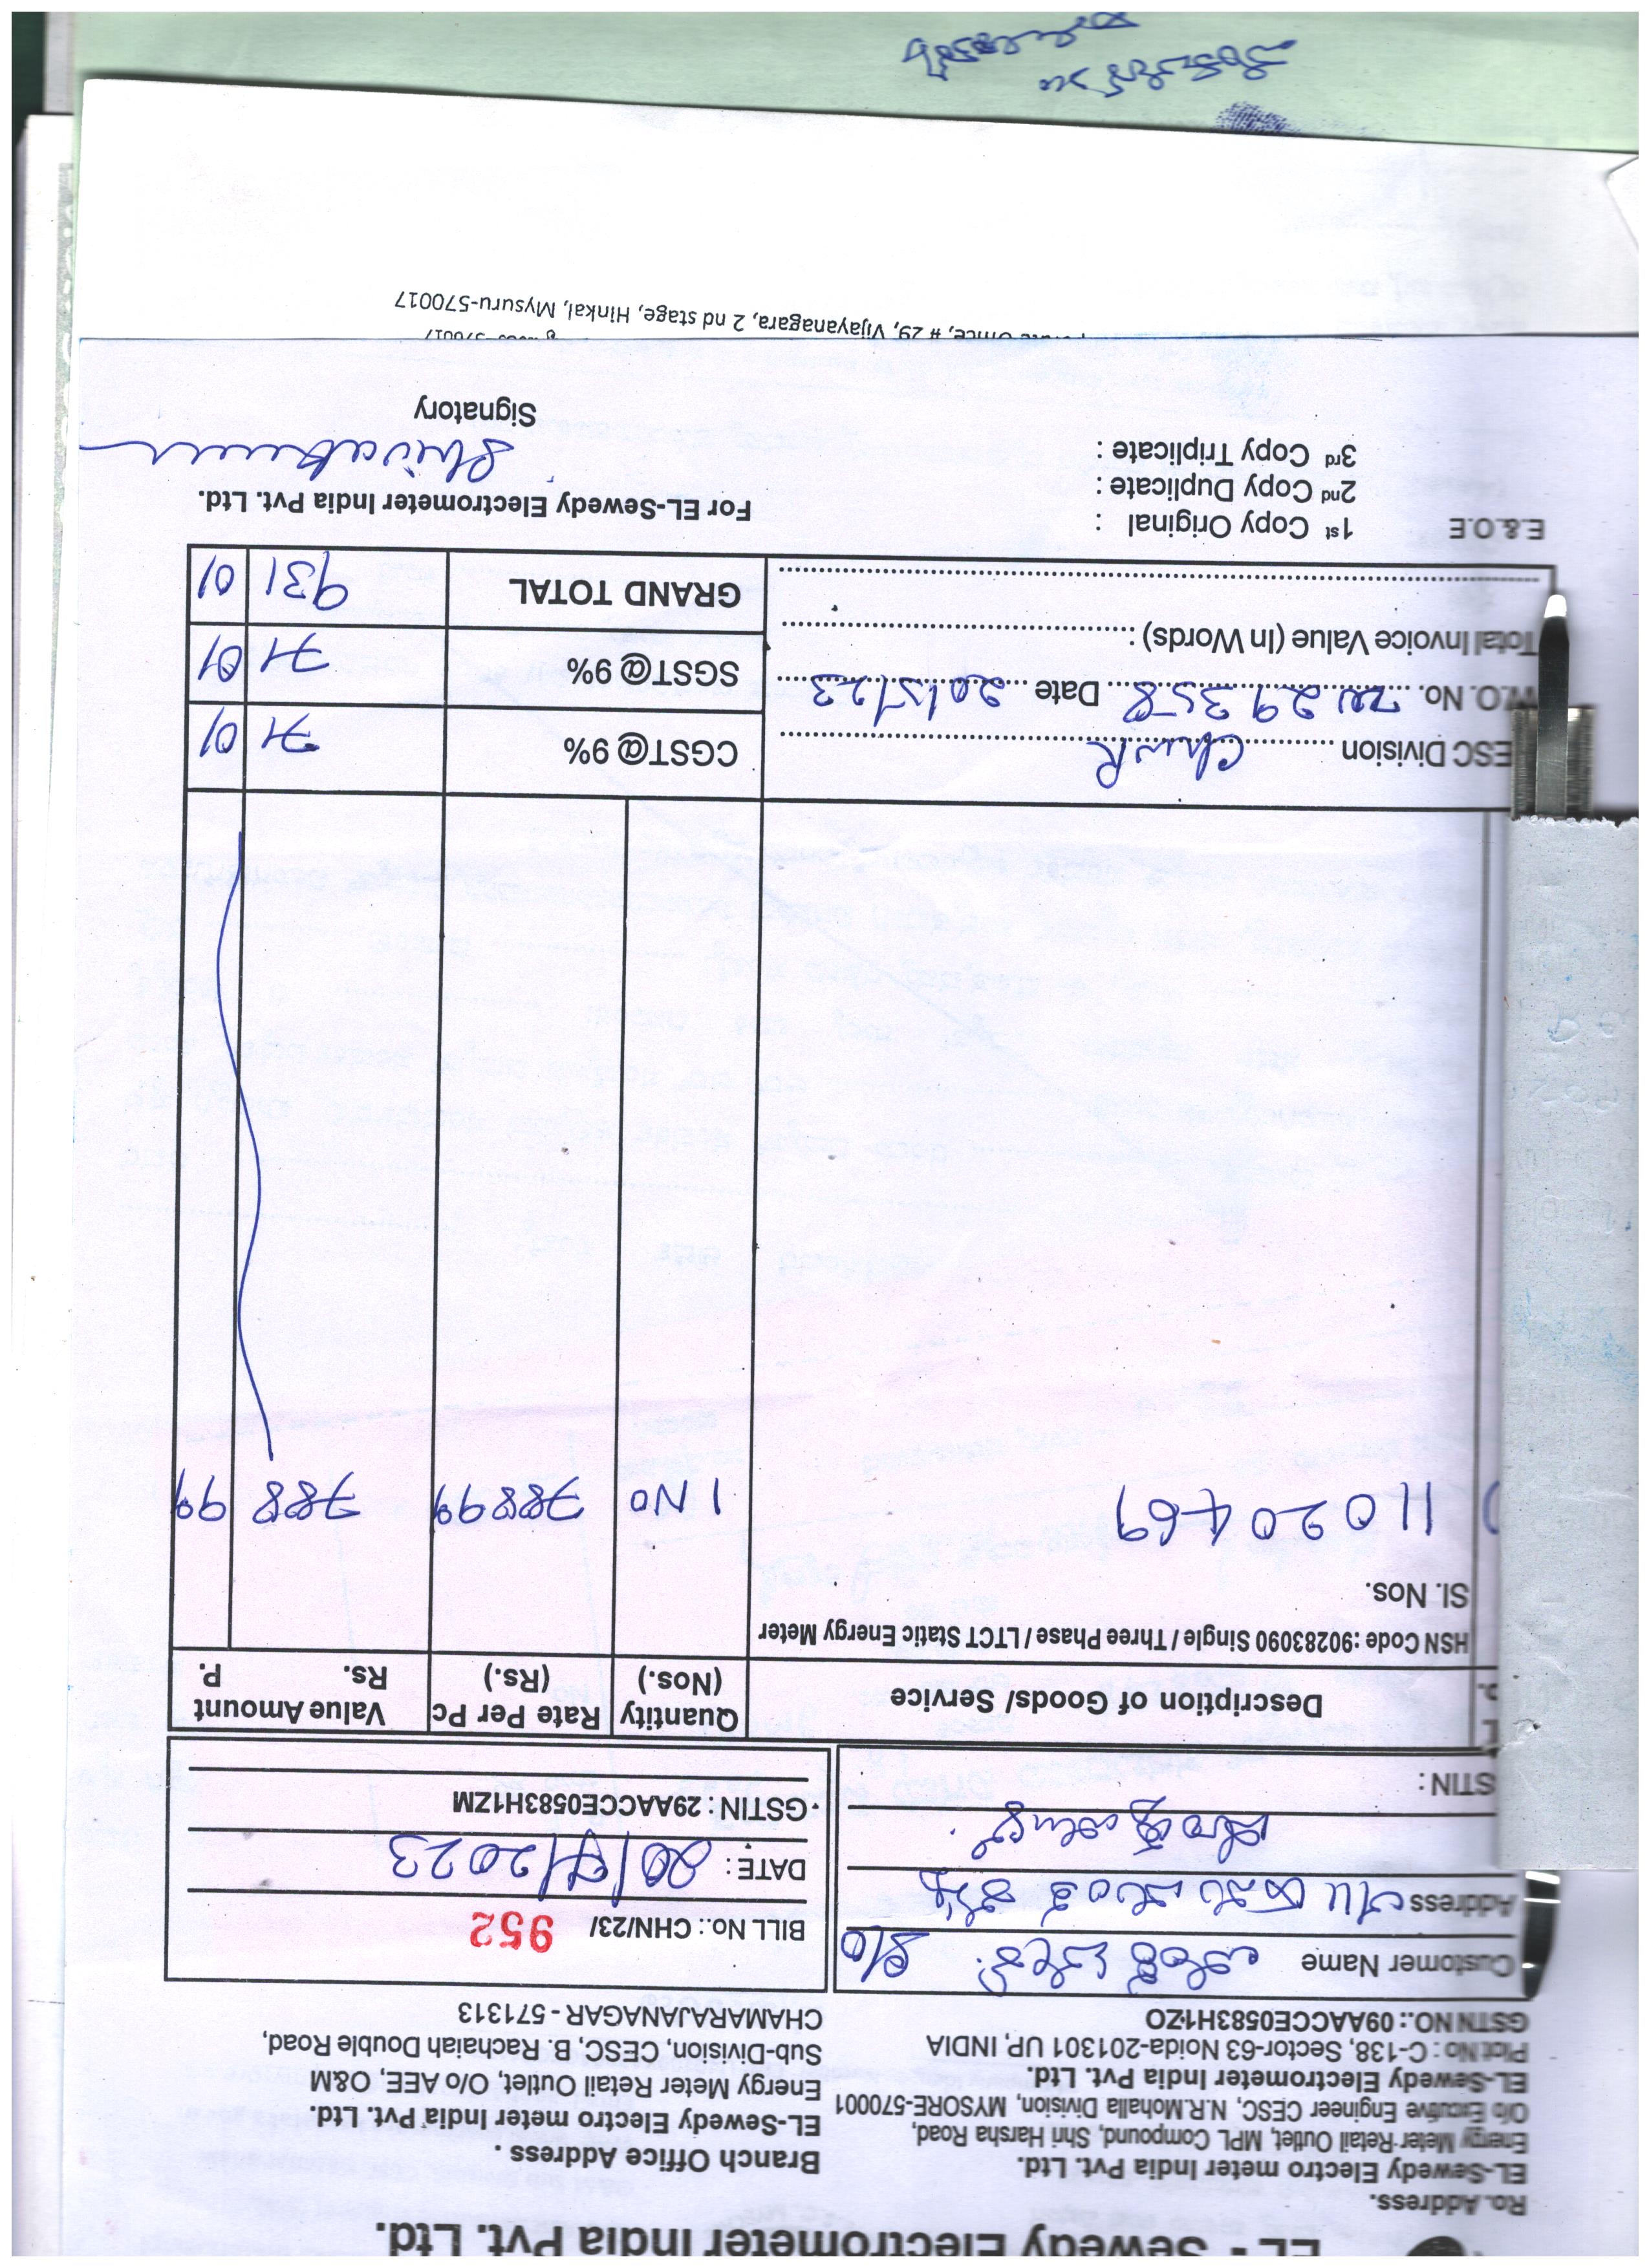 EL - Sewedy Electrometer India Pvt. Ltd.
Ro. Address.
EL-Sewedy Electro meter India Pvt. Ltd.
Energy Meter Retail Outlet, MPL Compound, Shri Harsha Road,
O/o Excutive Engineer CESC, N.R.Mohalla Division, MYSORE-570001
EL-Sewedy Electrometer India Pvt. Ltd.
Plot No : C-138, Sector-63 Noida-201301 UP, INDIA
GSTN NO.: 09AACCE0583H1ZO
Branch Office Address .
EL-Sewedy Electro meter India Pvt. Ltd.
Energy Meter Retail Outlet, O/o AEE, O&M
Sub-Division, CESC, B. Rachaiah Double Road,
CHAMARAJANAGAR - 571313
Customer Name S/o
Address
STIN :
BILL No.: CHN/23/ 952
DATE : 20/7/2023
GSTIN : 29AACCE0583H1ZM
Description of Goods/ Service
Quantity (Nos.)
Rate Per Pc (Rs.)
Value Amount
Rs. P.
HSN Code :90283090 Single / Three Phase / LTCT Static Energy Meter
Sl. Nos.
11020469 1 No 78899 788 99
ESC Division
CGST@ 9% 71 01
W.O. No. 29358 Date 20/5/23
SGST@ 9% 71 01
Total Invoice Value (In Words) :
GRAND TOTAL 931 01
E.&.O.E
1st Copy Original :
2nd Copy Duplicate :
3rd Copy Triplicate :
For EL-Sewedy Electrometer India Pvt. Ltd.
Signatory
570017
Office, # 29, Vijayanagara, 2 nd stage, Hinkal, Mysuru-570017